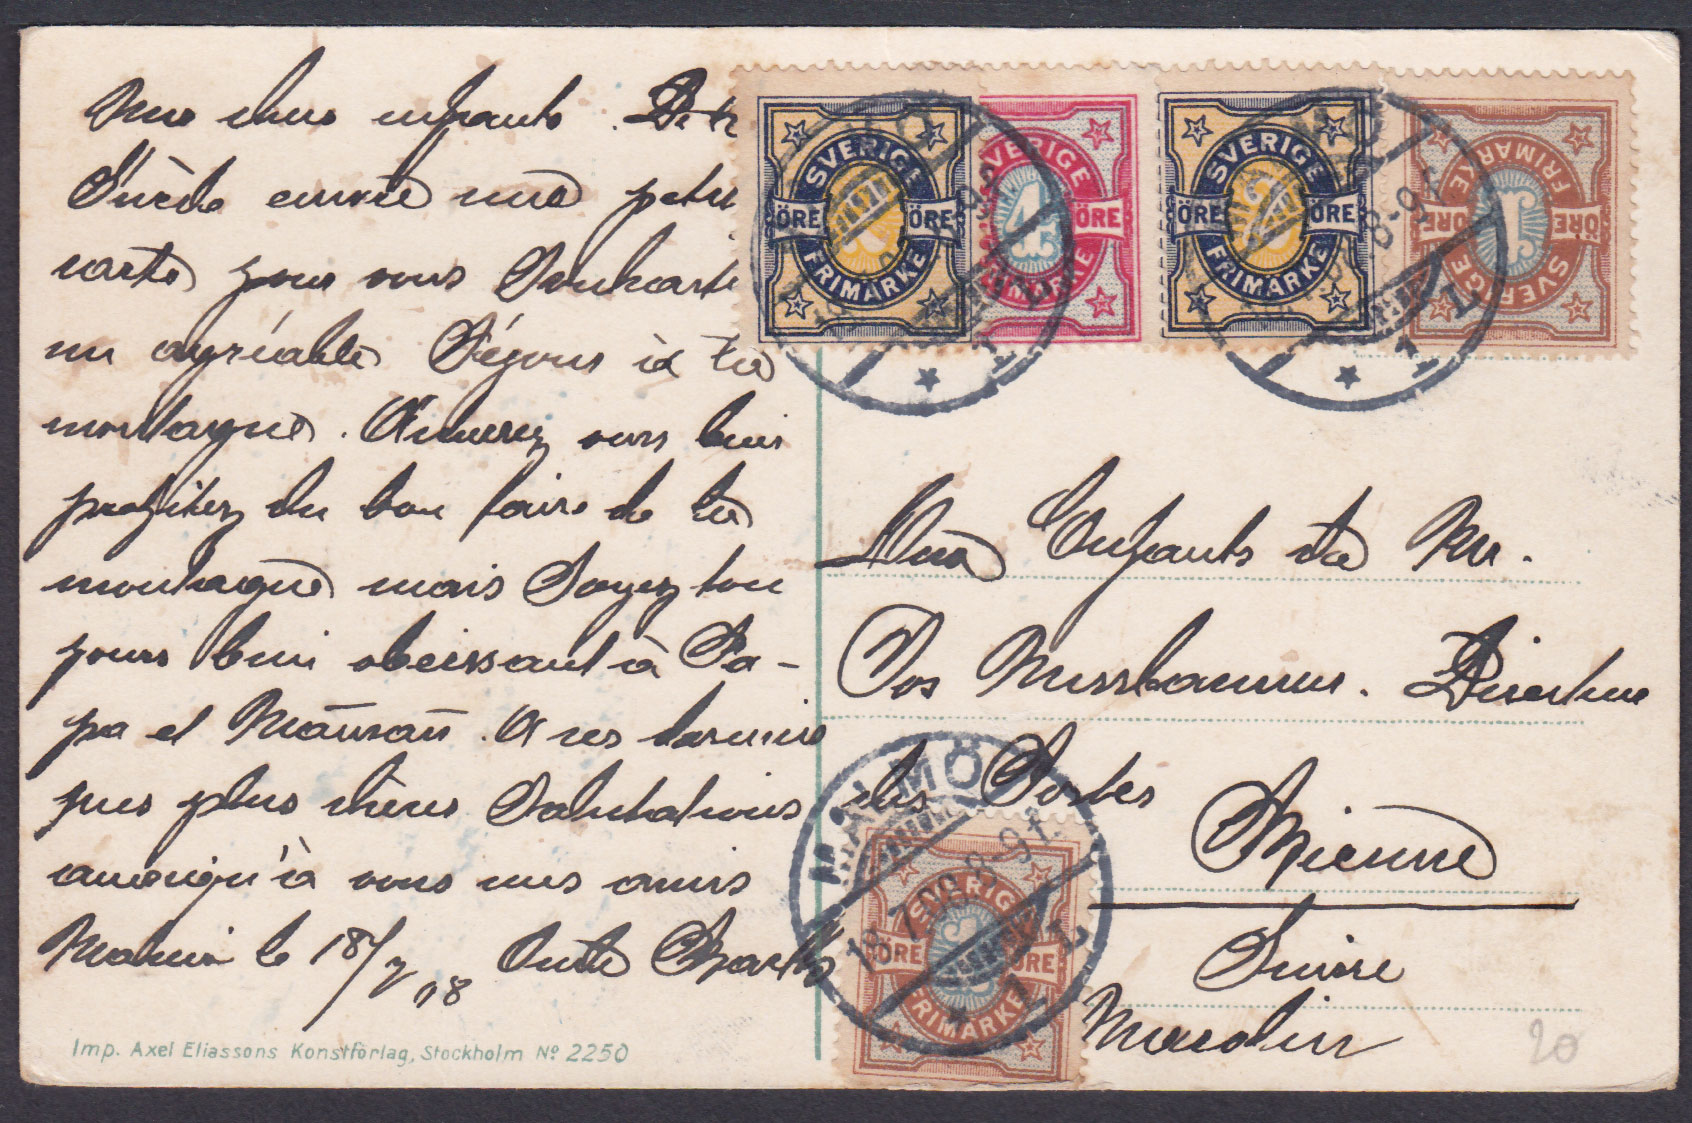 Mes chers enfants. De la
Suède envoie une petite
carte pour vous Souhaiter
un agréable Séjour à la
montagne. Amusez vous bien
profitez du bon l'aire de la
montagne mais Soyez tou
jours bien obeissant à Pa-
pa et Maman. A
plus chères Salutations
ainsi qu'à vous mes amis
Malmö le 18/7 08
Imp. Axel Eliassons Konstförlag, Stockholm No 2250
SVERIGE
ÖRE ÖRE
FRIMÄRKE
SVERIGE
4
ÖRE
FRIMÄRKE
SVERIGE
2
ÖRE ÖRE
FRIMÄRKE
SVERIGE
1
ÖRE ÖRE
FRIMÄRKE
8-9 f.
Enfants de Mr.
Directeur
des Postes
Bienne
Suisse
Macolin
MALMÖ
18.7.09.8-9 f.
1
SVERIGE
1
ÖRE ÖRE
FRIMÄRKE
20